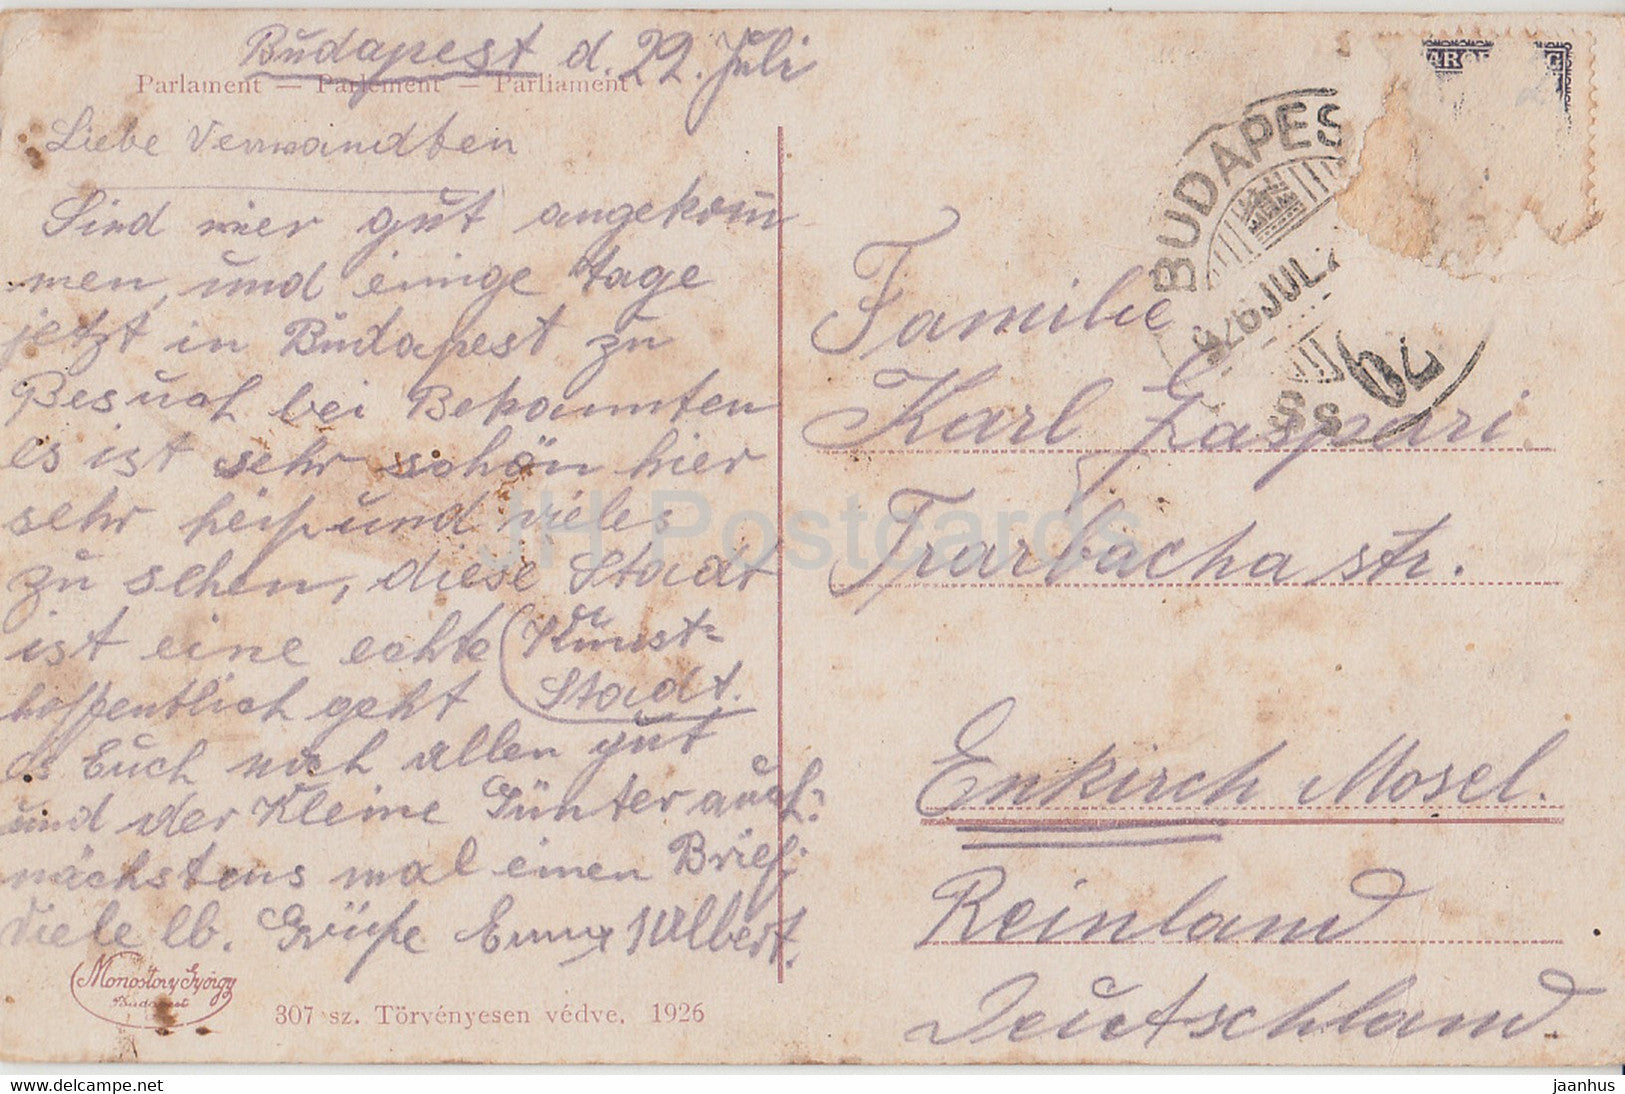 Budapest d. 22. Juli
Parlament — Parlement — Parliament
Liebe Verwandten
Sind wier gut angekom
men, und einige tage
jetzt in Budapest zu
Besuch bei Bekannten
es ist sehr schön hier
sehr heiß und vieles
zu sehen, diese Stadt
ist eine echte Kunst-
Stadt.
hoffentlich geht
es Euch noch allen gut
und der Kleine Günter auch.
nächstens mal einen Brief.
Viele lb. Grüße Enny u Albert.
Monostory György
Budapest
307 sz. Törvényesen védve. 1926
BUDAPES
926 JUL.
62
Familie
Karl Gaspari
Trarbacha str.
Enkirch Mosel.
Reinland
Deutschland.
JH Postcards
delcampe.net
jaanhus